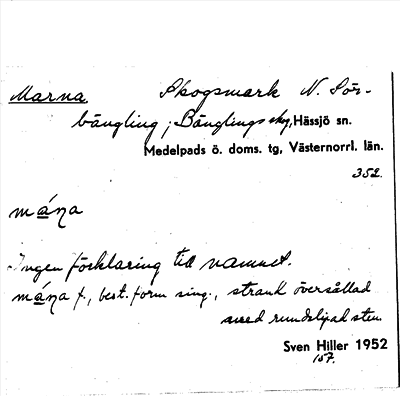 Marna. Skogsmark N. Sör-
bängling; Bänglings skog, Hässjö sn.
Medelpads ö. doms. tg, Västernorrl. län.
352.
må̱ṇa
Ingen förklaring till namnet.
må̱ṇa f., best. form sing., strand översållad
med rundslipad sten.
Sven Hiller 1952
157.